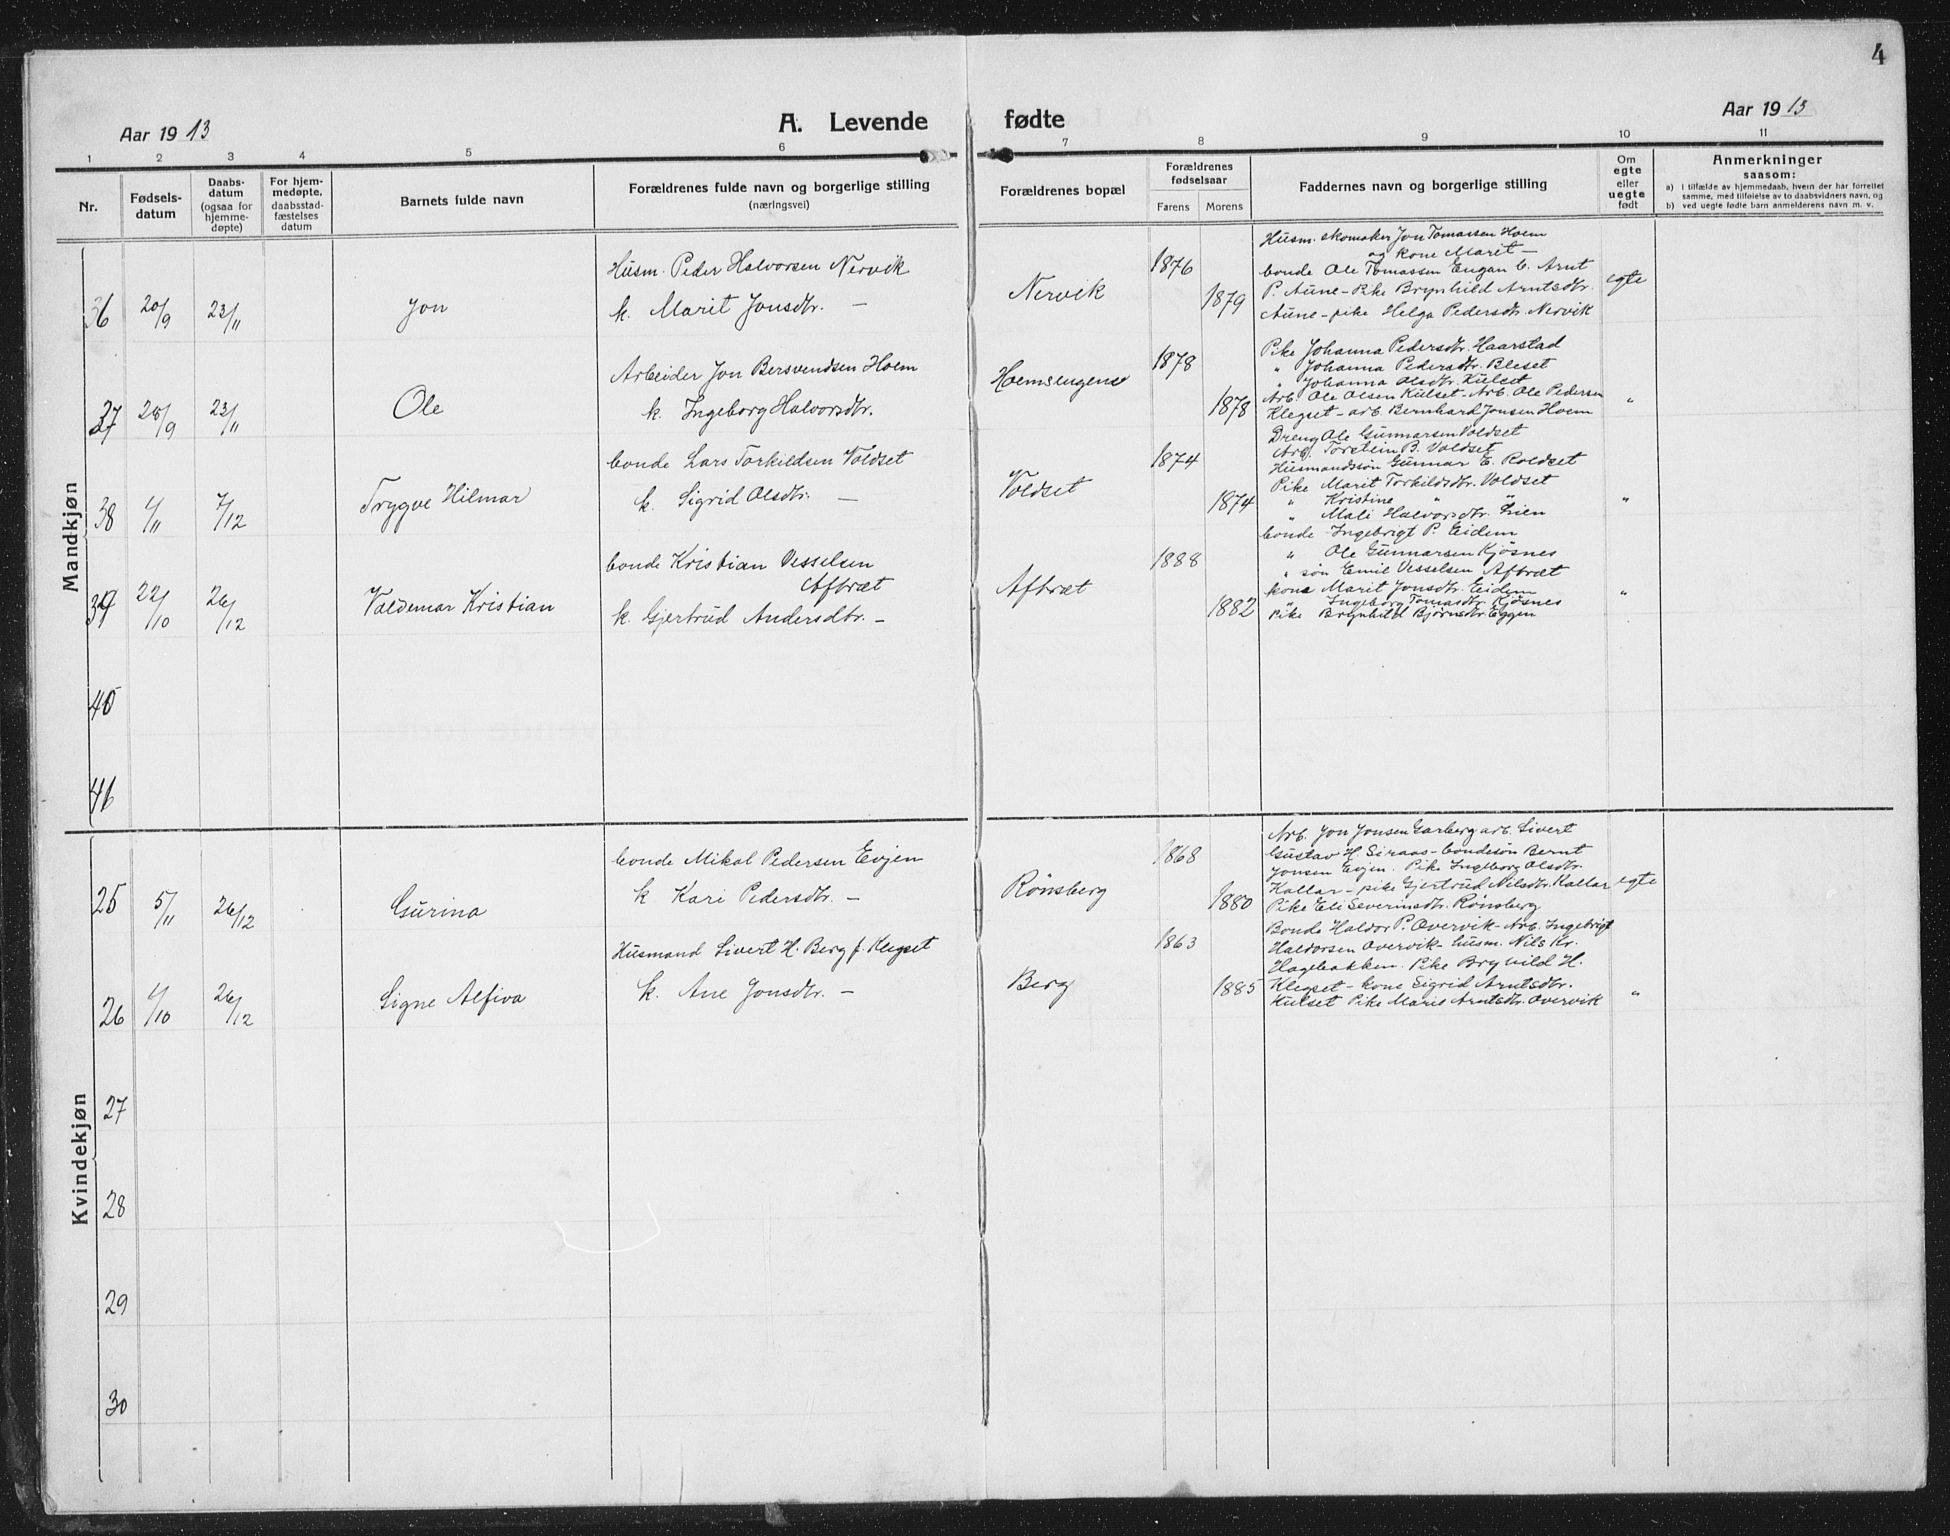 4
Aar 1913
A. Levende fødte
Aar 1913
1 2 3 4 5 6 7 8 9 10 11
Nr.
Fødsels-
datum
Daabs-
datum
(ogsaa for
hjemme-
døpte)
For hjem-
medøpte,
daabsstad-
fæstelses
datum
Barnets fulde navn
Forældrenes fulde navn og borgerlige stilling
(næringsvei)
Forældrenes bopæl
Forældrenes
fødselsaar
Farens Morens
Faddernes navn og borgerlige stilling
Om
egte
eller
uegte
født
Anmerkninger
saasom:
a) i tilfælde av hjemmedaab, hvem der har forrettet
samme, med tilføielse av to daabsvidners navn, og
b) ved uegte fødte barn anmelderens navn m. v.
Mandkjøn
36 20/9 23/11 Jon
Husm. Peder Halvorsen Nervik
k. Marit Jonsdtr. —
Nervik
1876
1879
Husm. skomaker Jon Tomassen Hoem
og kone Marit —
bonde Ole Tomassen Engan b. Arnt
P. Aune - Pike Brynhild Arntsdtr.
Aune - pike Helga Pedersdtr. Nervik
egte
37 28/9 23/11 Ole
Arbeider Jon Bersvendsen Hoem
k. Ingeborg Halvorsdtr.
Hoemsengene
1878
1878
Pike Johanna Pedersdtr. Haarstad
" Johanna Pedersdtr. Bleset
" Johanna Olsdtr. Kulset
Arb. Ole Olsen Kulset - Arb. Ole Pedersen
Klegset - arb. Bernhard Jonsen Hoem
"
38 4/11 7/12 Trygve Hilmar
bonde Lars Torkildsen Voldset
k. Sigrid Olsdtr. —
Voldset
1874
1874
Dreng Ole Gunnarsen Voldset
Arb. Torstein B. Voldset
Husmandssøn Gunnar E. Roldset
Pike Marit Torkildsdtr. Voldset
" Kristine " "
" Mali Halvorsdtr. Lien
"
39 22/10 26/12 Valdemar Kristian
bonde Kristian Vesselsen
Afbræt
k. Gjertrud Andersdtr. —
Afbræt
1888
1882
bonde Ingebrigt P. Eidem
" Ole Gunnarsen Kjøsnes
" søn Emil Vesselsen Afbræt
kone Marit Jonsdtr. Eidem
" Ingeborg Tomasdtr. Kjøsnes
Pike Brynhild Bjørnsdtr. Eggen
"
40
41
Kvindekjøn
25 5/11 26/12 Gurina
bonde Mikal Pedersen Evjen
k. Kari Pedersdtr. —
Rønsberg
1868
1880
Arb. Jon Jonsen Garberg arb. Sivert
Gustav H. Siraas - bondesøn Bernt
Jonsen Evjen. Pike Ingeborg Olsdtr.
Kallar - pike Gjertrud Nilsdtr. Kallar
Pike Eli Severinsdtr. Rønsberg
egte
26 4/10 26/12 Signe Alfiva
Husmand Sivert H. Berg f. Klegset
k. Ane Jonsdtr. —
Berg
1863
1885
Bonde Haldor P. Overvik - Arb. Ingebrigt
Haldorsen Overvik - husm. Nils Kr.
Hagebakken. Pike Brynild H.
Klegset - kone Sigrid Arntsdtr.
Kulset Pike Marie Arntsdtr. Overvik
"
27
28
29
30